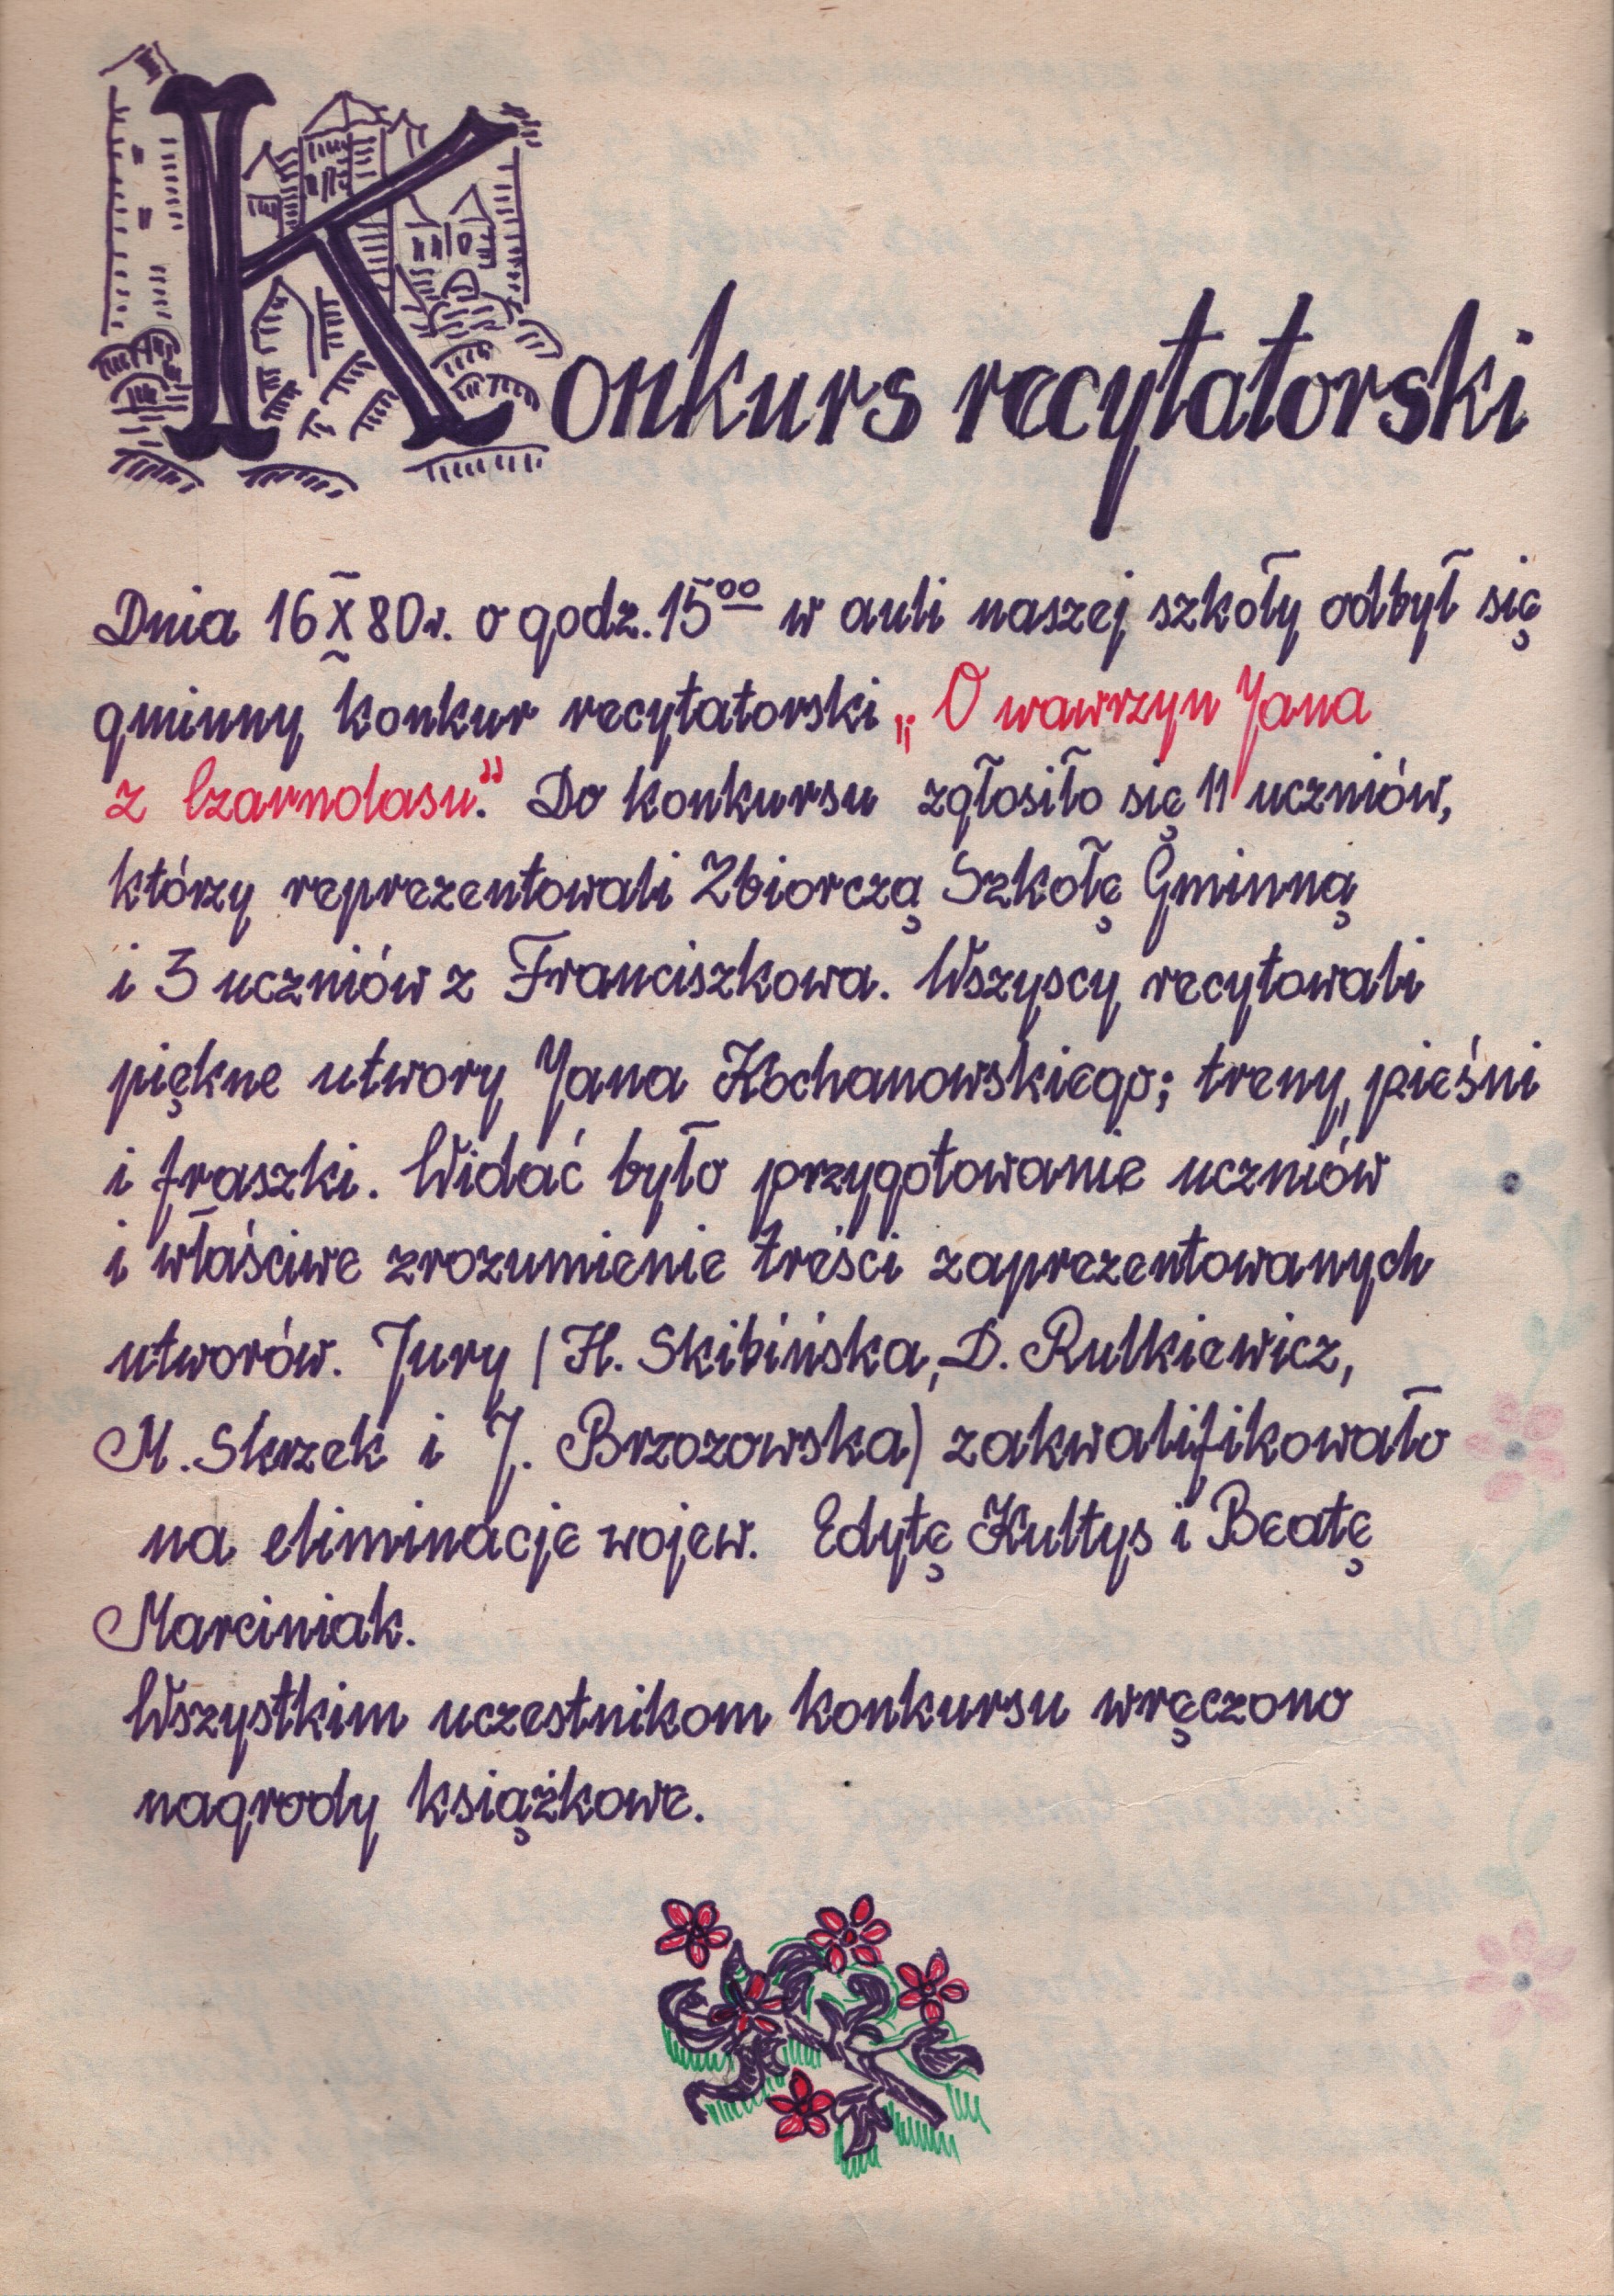 Konkurs recytatorski
Dnia 16 X 80r. o godz. 15⁰⁰ w auli naszej szkoły odbył się
gminny konkur recytatorski „O wawrzyn Jana
z Czarnolasu". Do konkursu zgłosiło się 11 uczniów,
którzy reprezentowali Zbiorczą Szkołę Gminną
i 3 uczniów z Franciszkowa. Wszyscy recytowali
piękne utwory Jana Kochanowskiego; treny, pieśni
i fraszki. Widać było przygotowanie uczniów
i właściwe zrozumienie treści zaprezentowanych
utworów. Jury (H. Skibińska, D. Rutkiewicz,
M. Skrzek i J. Brzozowska) zakwalifikowało
na eliminacje wojew. Edytę Kułtys i Beatę
Marciniak.
Wszystkim uczestnikom konkursu wręczono
nagrody książkowe.